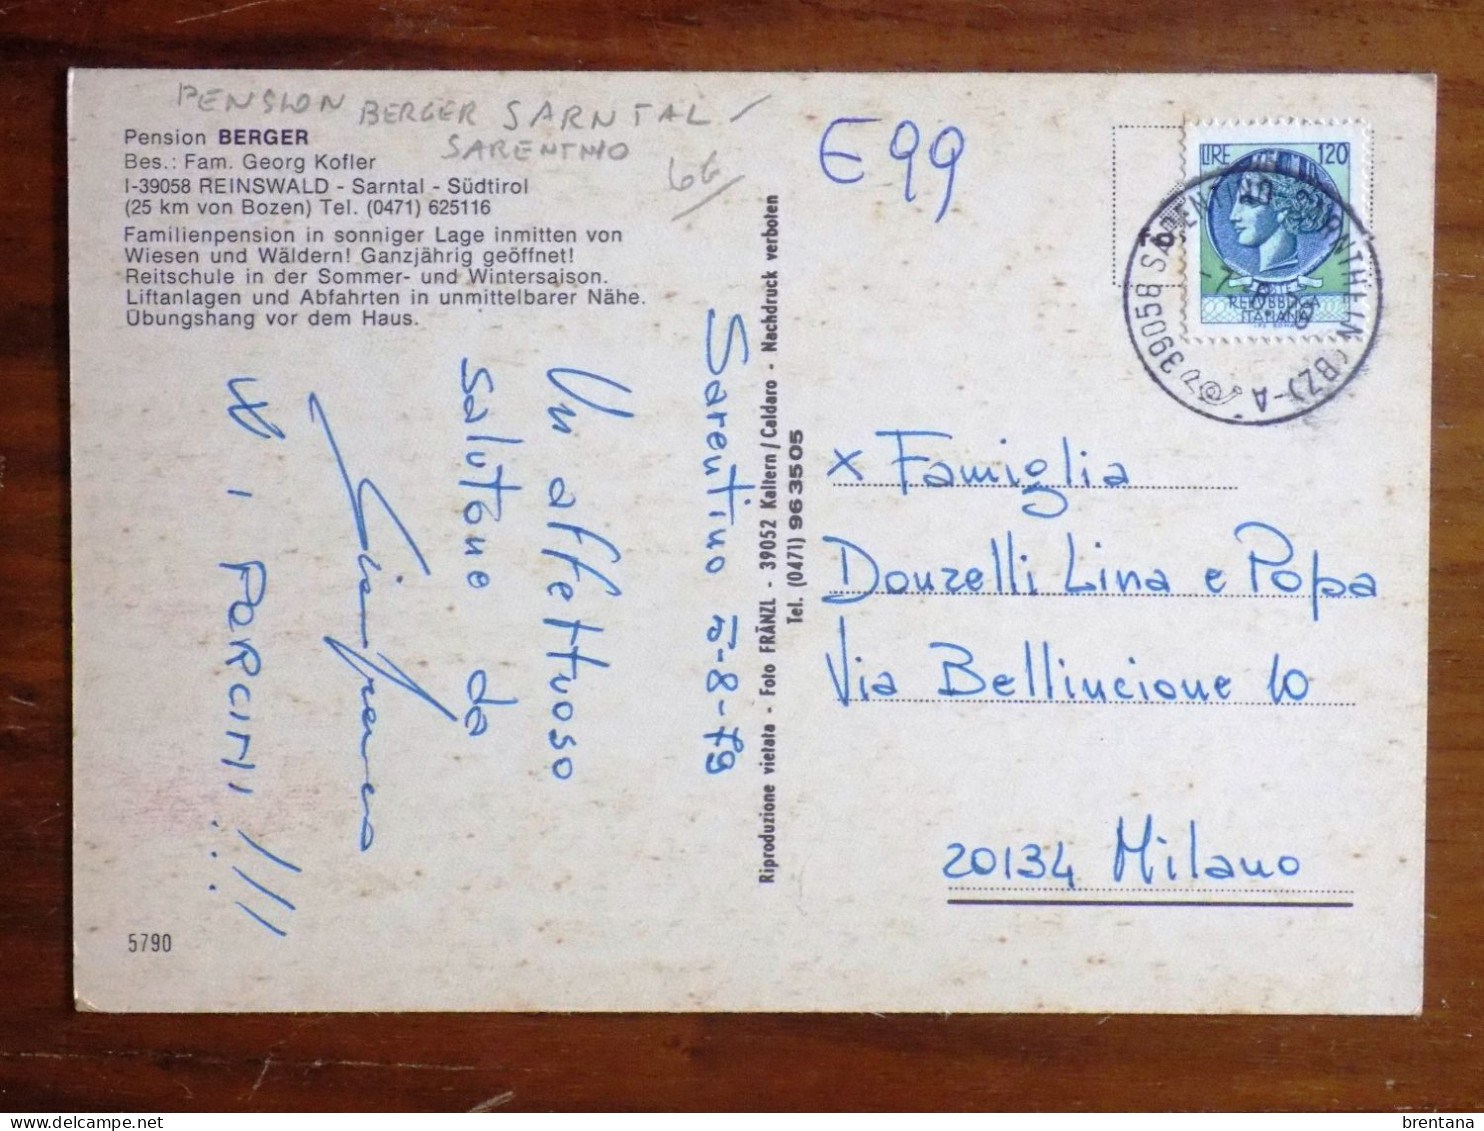 PENSION BERGER SARNTAL /
SARENTINO
66/
Pension BERGER
Bes.: Fam. Georg Kofler
I-39058 REINSWALD - Sarntal - Südtirol
(25 km von Bozen) Tel. (0471) 625116
Familienpension in sonniger Lage inmitten von
Wiesen und Wäldern! Ganzjährig geöffnet!
Reitschule in der Sommer- und Wintersaison.
Liftanlagen und Abfahrten in unmittelbarer Nähe.
Übungshang vor dem Haus.
Sarentino 5-8-79
Un affettuoso
salutone da
Gianfranco
W i PORCINI!!!
5790
Riproduzione vietata - Foto FRÄNZL - 39052 Kaltern/Caldaro - Nachdruck verboten
Tel. (0471) 963505
E 99
LIRE 120
REPVBBLICA
ITALIANA
39058 SARENTINO SARNTHEIN (BZ)-A
x Famiglia
Donzelli Lina e Popa
Via Bellincione 10
20134 Milano
brentana